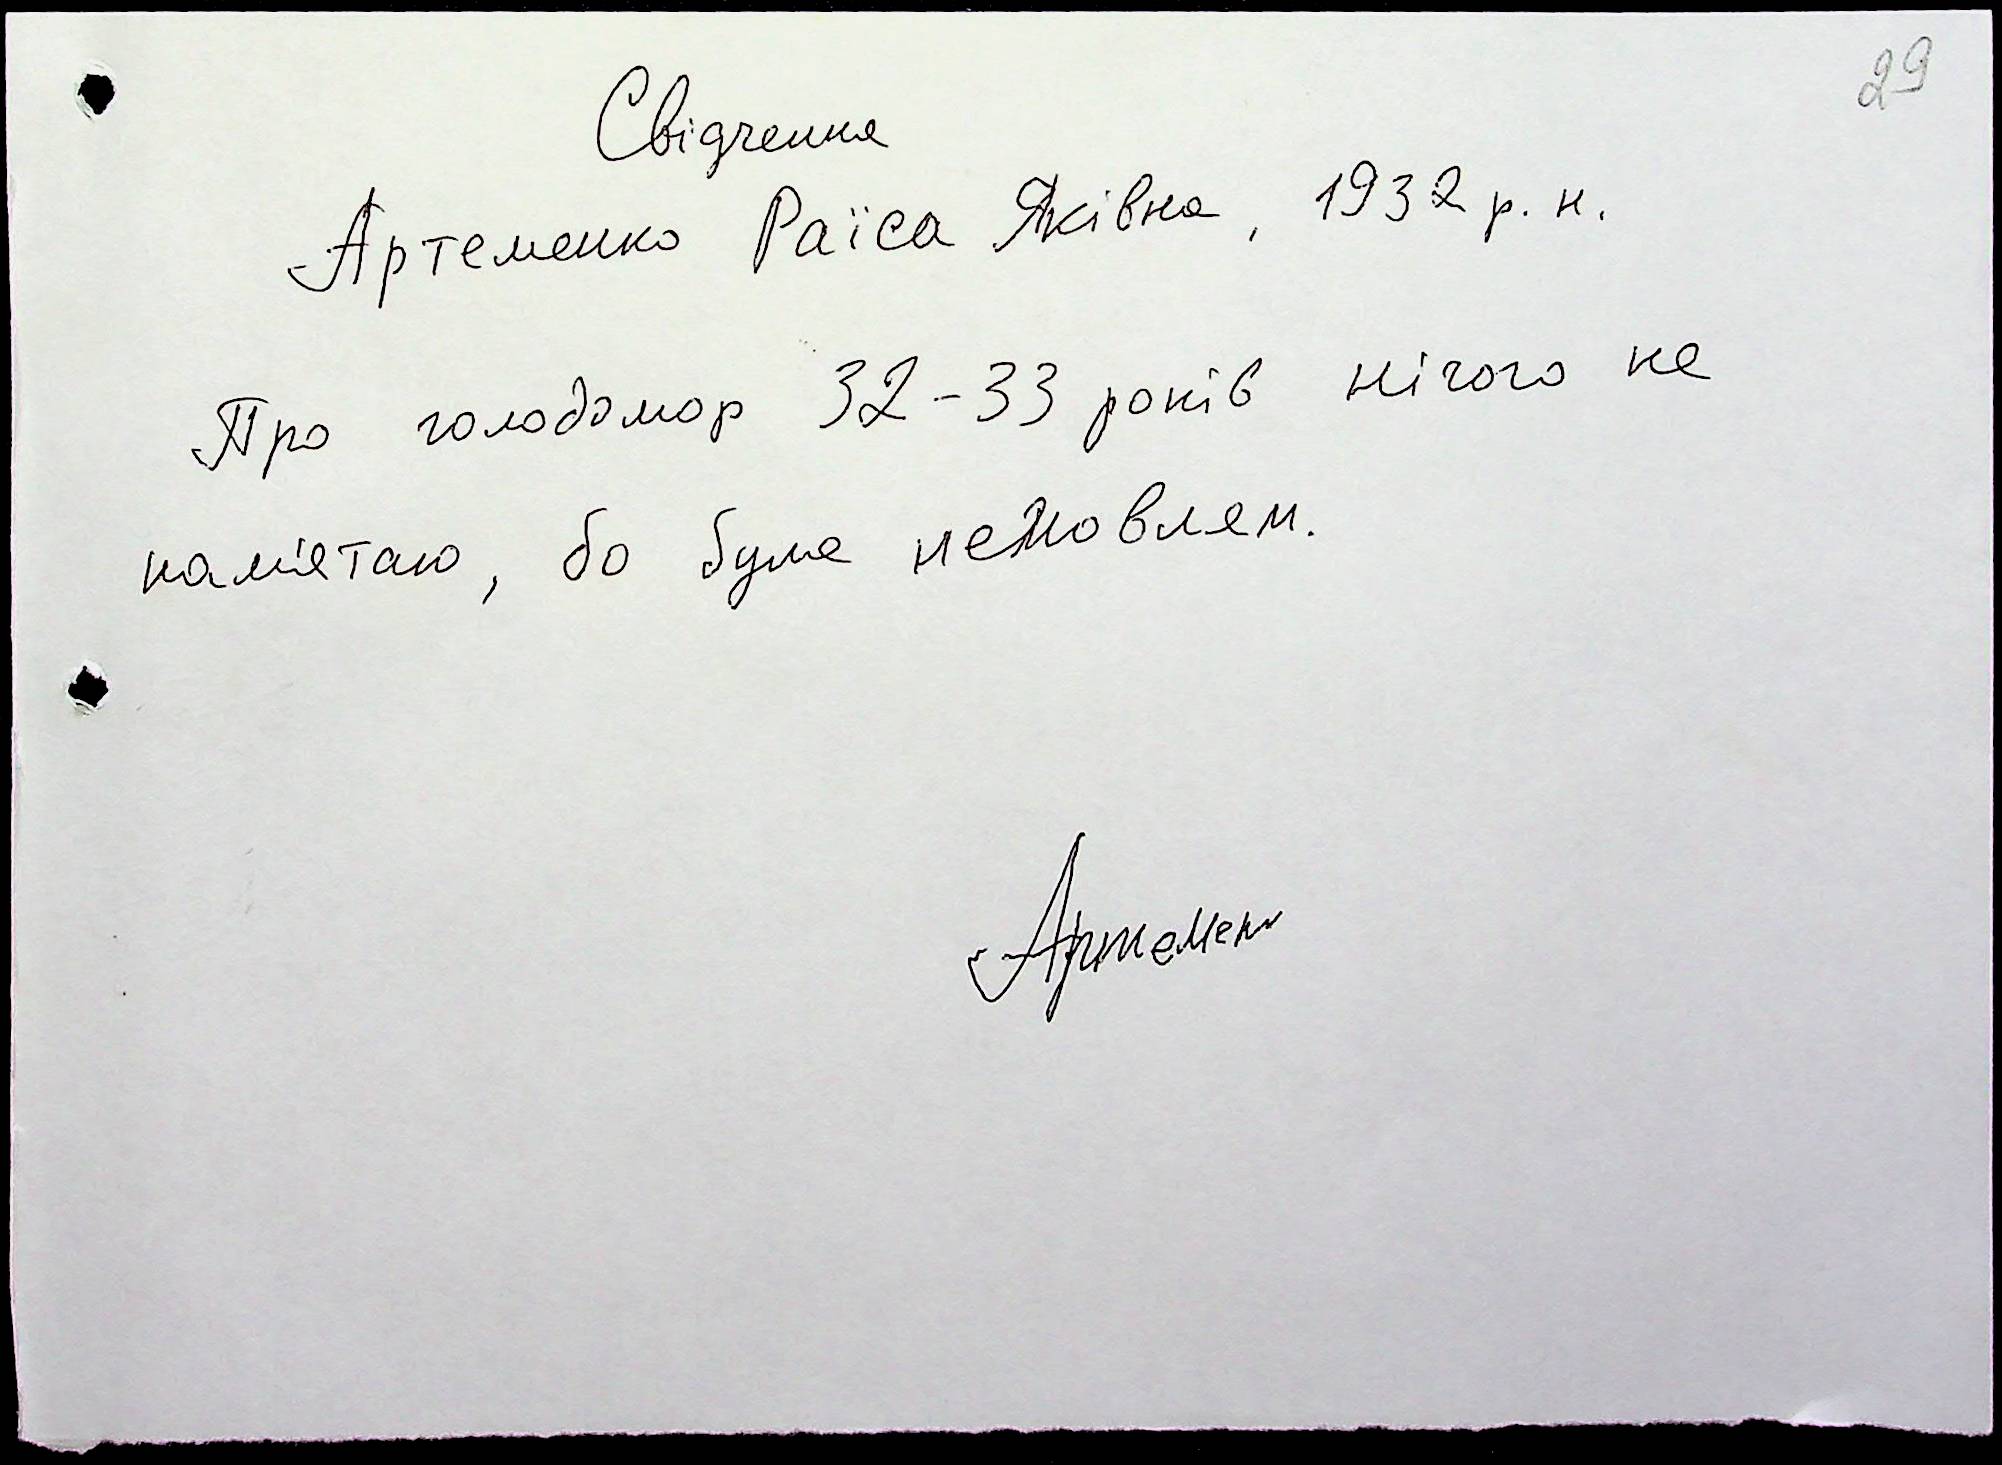 29
Свідчення
Артеменко Раїса Яківна, 1932 р. н.
Про голодомор 32-33 років нічого не
пам'ятаю, бо була немовлям.
Артемен